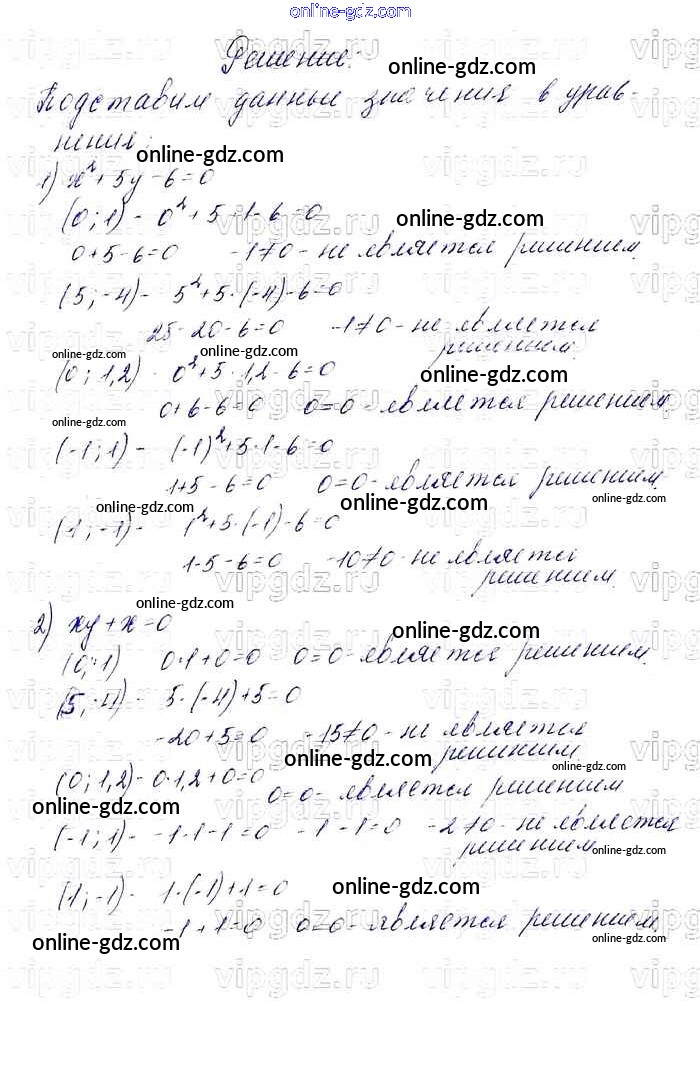 online-gdz.com
Решение:
Подставим данные значения в урав-
нения:
1) x²+5y-6=0
(0;1) - 0²+5·1-6=0
0+5-6=0 -1≠0 - не является решением.
(5;-4) - 5²+5·(-4)-6=0
25-20-6=0 -1≠0 - не является
решением.
(0;1,2) - 0²+5·1,2-6=0
0+6-6=0 0=0 - является решением.
(-1;1) - (-1)²+5·1-6=0
1+5-6=0 0=0 - является решением.
(1;-1) - 1²+5·(-1)-6=0
1-5-6=0 -10≠0 - не является
решением.
2) xy+x=0
(0;1) 0·1+0=0 0=0 - является решением.
(5;-4) - 5·(-4)+5=0
-20+5=0 -15≠0 - не является
решением.
(0;1,2) - 0·1,2+0=0
0=0 - является решением
(-1;1) - -1·1-1=0 -1-1=0 -2≠0 - не является
решением
(1;-1) - 1·(-1)+1=0
-1+1=0 0=0 - является решением.